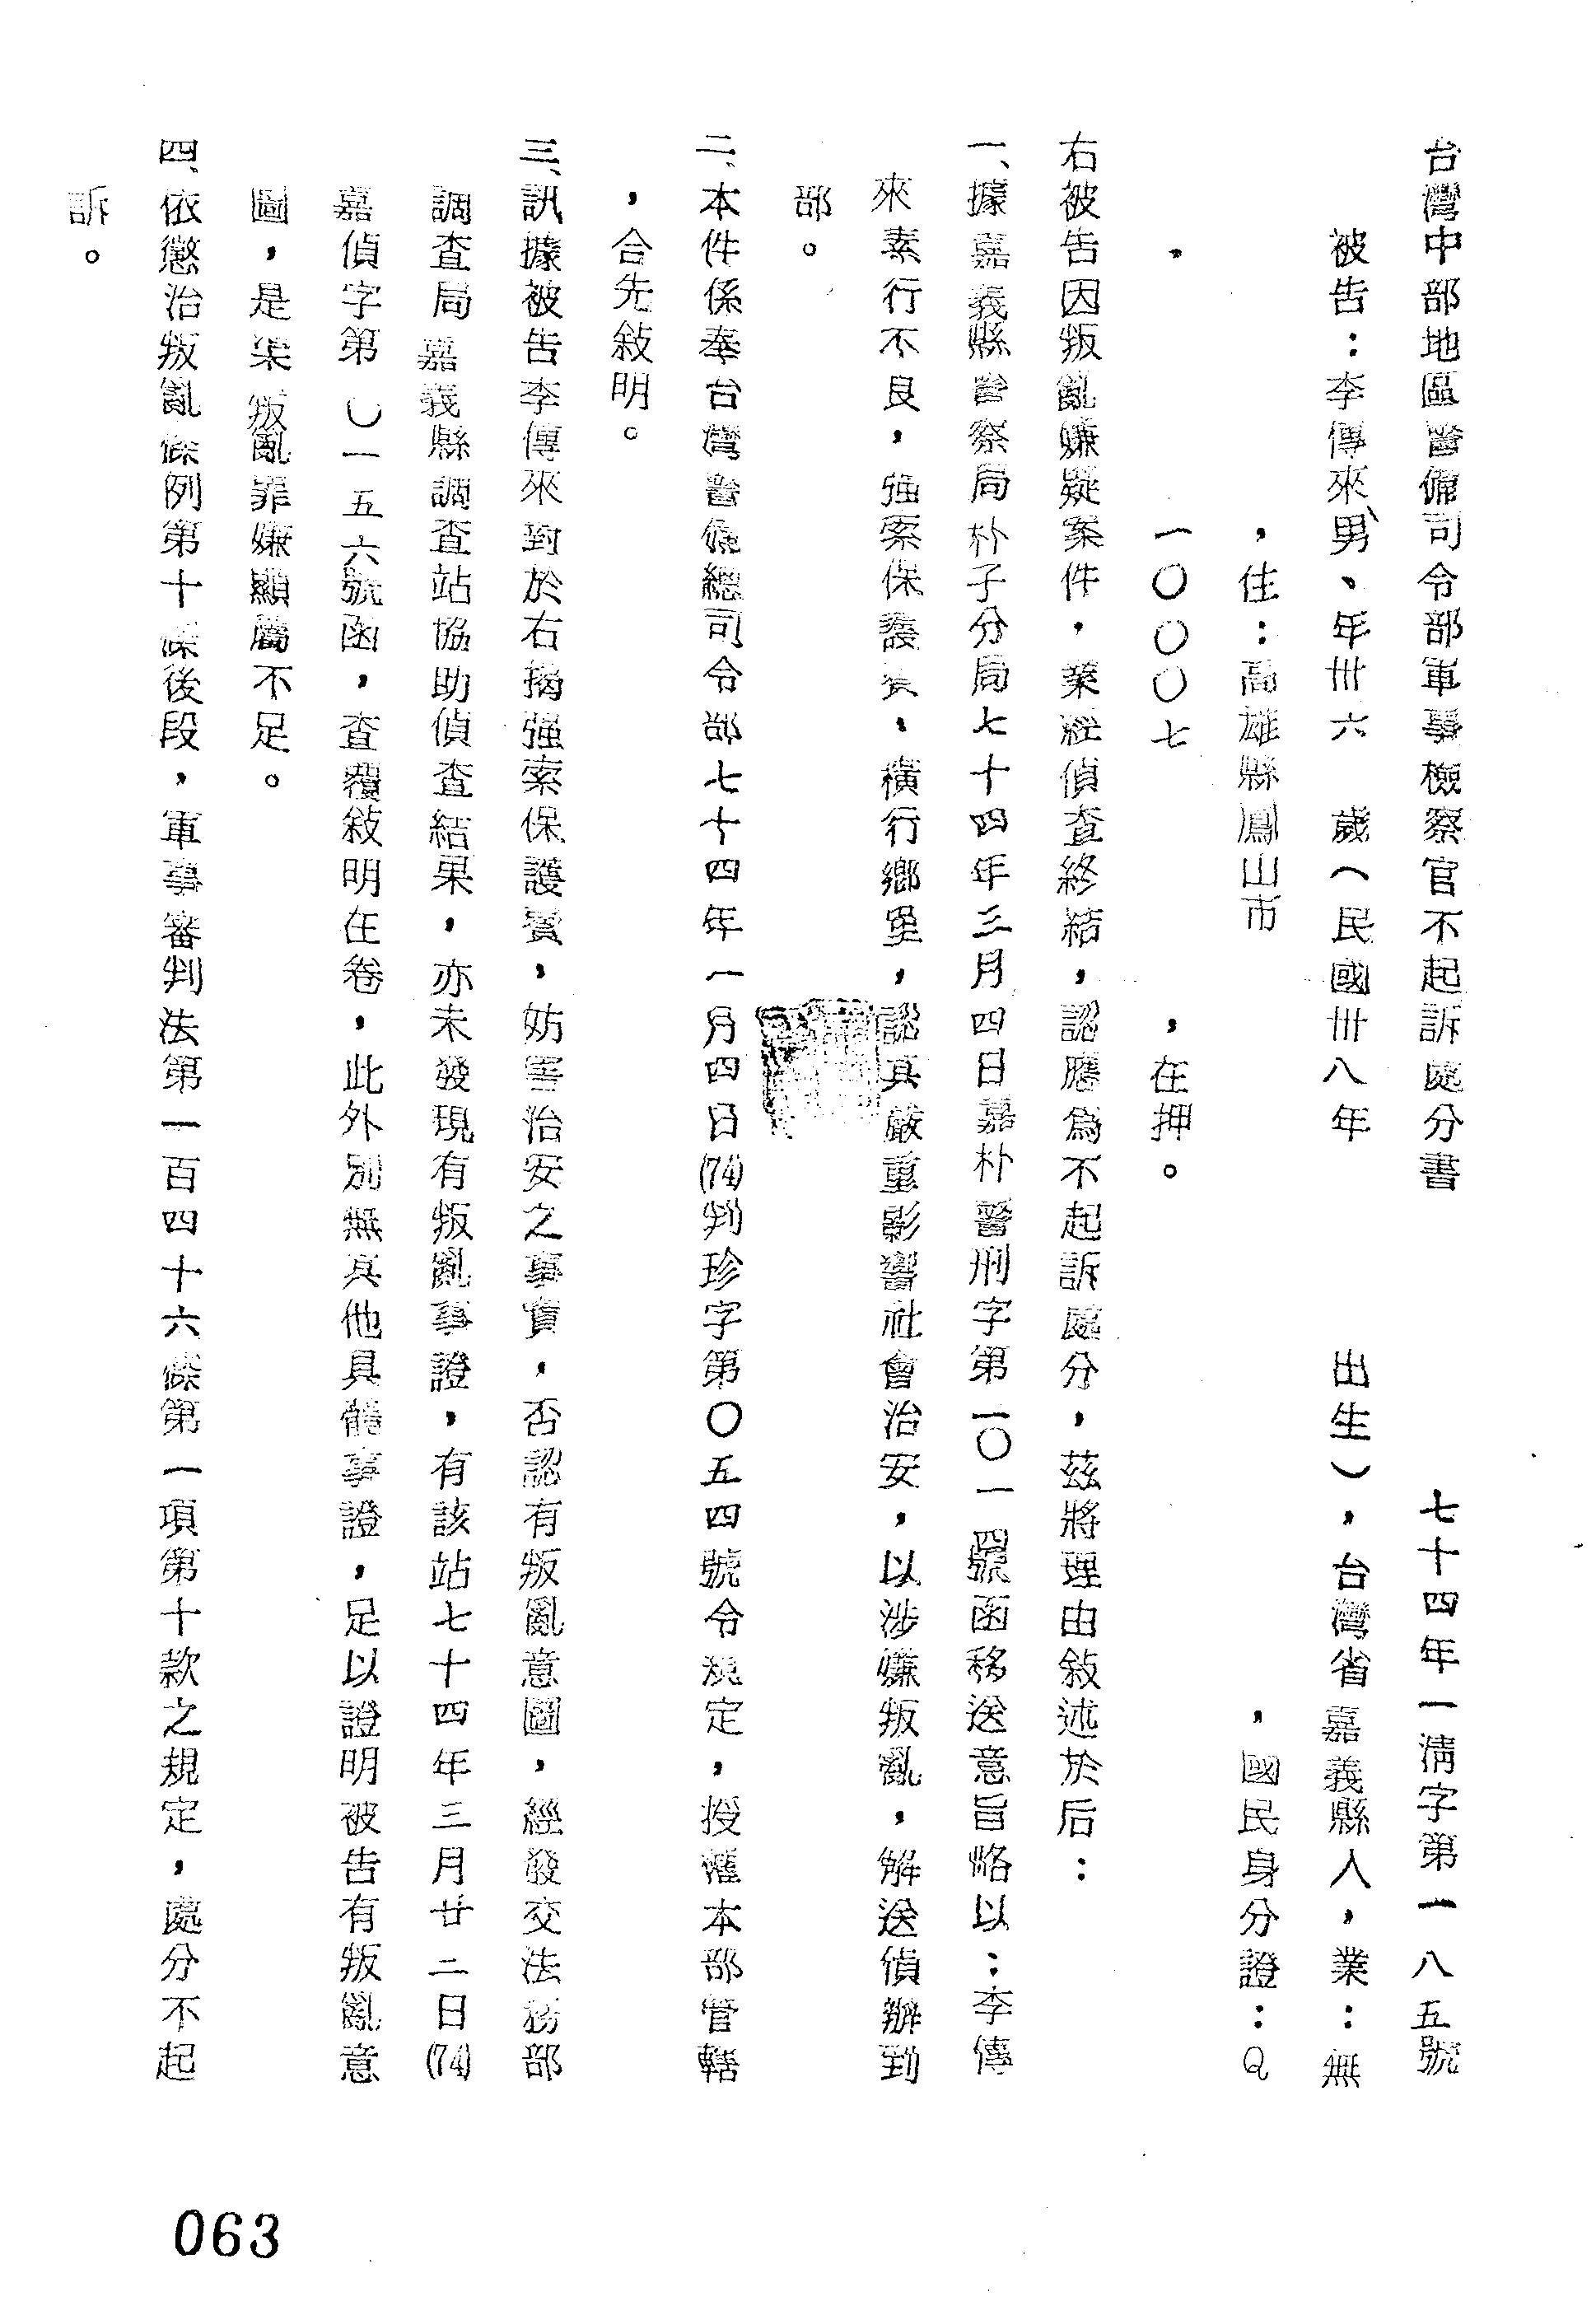 台灣中部地區警備司令部軍事檢察官不起訴處分書 七十四年一清字第一八五號
被告：李傳來、男、年卅六 歲（民國卅八年 出生），台灣省嘉義縣人，業：無
，住：高雄縣鳳山市 ，國民身分證：Q
一〇〇〇七 ，在押。
右被告因叛亂嫌疑案件，業經偵查終結，認應為不起訴處分，茲將理由敍述於后：
一、據嘉義縣警察局朴子分局七十四年三月四日嘉朴警刑字第一〇一四號函移送意旨略以：李傳
來素行不良，強索保護費、橫行鄉里，認其嚴重影響社會治安，以涉嫌叛亂，解送偵辦到
部。
二、本件係奉台灣警備總司令部七十四年一月四日(74)判珍字第〇五四號令規定，授權本部管轄
，合先敍明。
三、訊據被告李傳來對於右揭強索保護費，妨害治安之事實，否認有叛亂意圖，經發交法務部
調查局嘉義縣調查站協助偵查結果，亦未發現有叛亂事證，有該站七十四年三月廿二日(74)
嘉偵字第〇一五六號函，查覆敍明在卷，此外別無其他具體事證，足以證明被告有叛亂意
圖，是渠叛亂罪嫌顯屬不足。
四、依懲治叛亂條例第十條後段，軍事審判法第一百四十六條第一項第十款之規定，處分不起
訴。
063